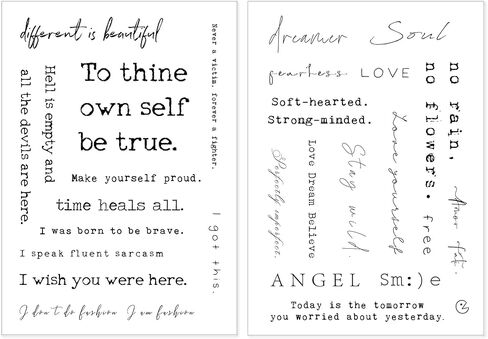 different is beautiful
Never a victim, forever a fighter.
Hell is empty and
all the devils are here.
To thine
own self
be true.
Make yourself proud.
time heals all.
I was born to be brave.
I speak fluent sarcasm
I got this.
I wish you were here.
I don't do fashion I am fashion
dreamer Soul
fearless LOVE
no rain,
no flowers.
Soft-hearted.
Strong-minded.
Love yourself
Stay wild.
Love Dream Believe
Perfectly imperfect.
Amor fati.
free
ANGEL Sm:)e
Today is the tomorrow
you worried about yesterday.